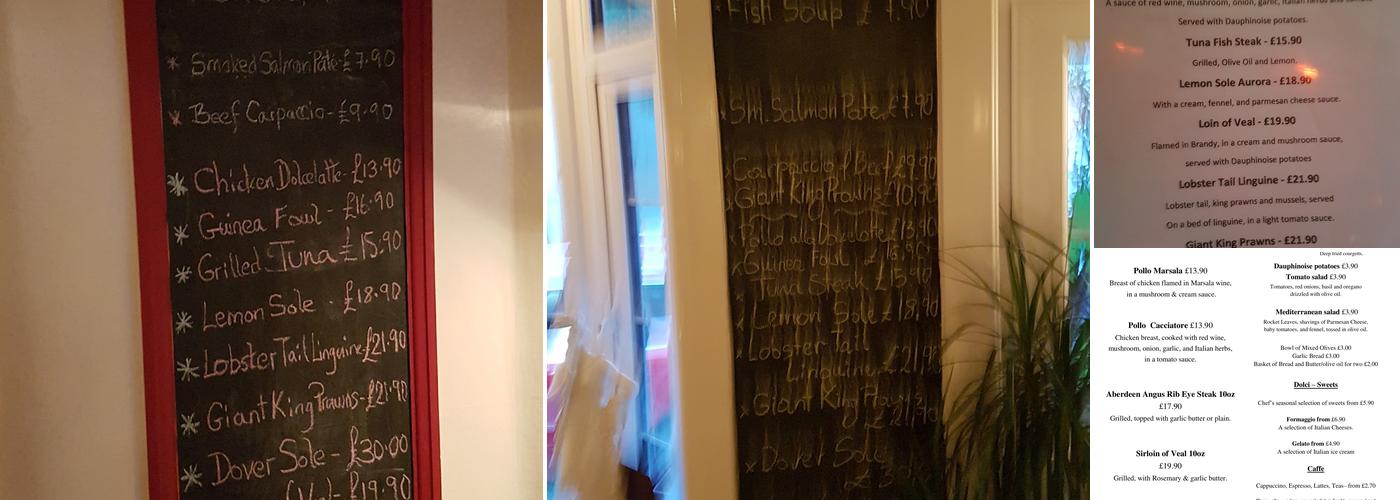 * Smoked Salmon Pate-£7.90
* Beef Carpaccio-£9.90
* Chicken Dolcelatte-£13.90
* Guinea Fowl - £16.90
* Grilled Tuna £15.90
* Lemon Sole - £18.90
* Lobster Tail Linguine-£21.90
* Giant King Prawns-£21.90
* Dover Sole - £30.00
£19.90
Fish Soup £ 7.90
Sm. Salmon Pate £7.90
Carpaccio of Beef £9.90
Giant King Prawns £10.90
Guinea Fowl
Tuna Steak £15.90
Lemon Sole £18.90
Lobster Tail
Linguine £21.90
Giant King Prawns
£21.90
Dover Sole
A sauce of red wine, mushroom, onion, garlic, Italian herbs and
Served with Dauphinoise potatoes.
Tuna Fish Steak - £15.90
Grilled, Olive Oil and Lemon.
Lemon Sole Aurora - £18.90
With a cream, fennel, and parmesan cheese sauce.
Loin of Veal - £19.90
Flamed in Brandy, in a cream and mushroom sauce,
served with Dauphinoise potatoes
Lobster Tail Linguine - £21.90
Lobster tail, king prawns and mussels, served
On a bed of linguine, in a light tomato sauce.
Giant King Prawns - £21.90
Pollo Marsala £13.90
Breast of chicken flamed in Marsala wine,
in a mushroom & cream sauce.
Pollo Cacciatore £13.90
Chicken breast, cooked with red wine,
mushroom, onion, garlic, and Italian herbs,
in a tomato sauce.
Aberdeen Angus Rib Eye Steak 10oz
£17.90
Grilled, topped with garlic butter or plain.
Sirloin of Veal 10oz
£19.90
Grilled, with Rosemary & garlic butter.
Deep fried courgetts.
Dauphinoise potatoes £3.90
Tomato salad £3.90
Tomatoes, red onions, basil and oregano
drizzled with olive oil.
Mediterranean salad £3.90
Rocket Leaves, shavings of Parmesan Cheese,
baby tomatoes, and fennel, tossed in olive oil.
Bowl of Mixed Olives £3.00
Garlic Bread £3.00
Basket of Bread and Butter/olive oil for two £2.00
Dolci – Sweets
Chef's seasonal selection of sweets from £5.90
Formaggio from £6.90
A selection of Italian Cheeses.
Gelato from £4.90
A selection of Italian ice cream
Caffe
Cappuccino, Espresso, Lattes, Teas– from £2.70